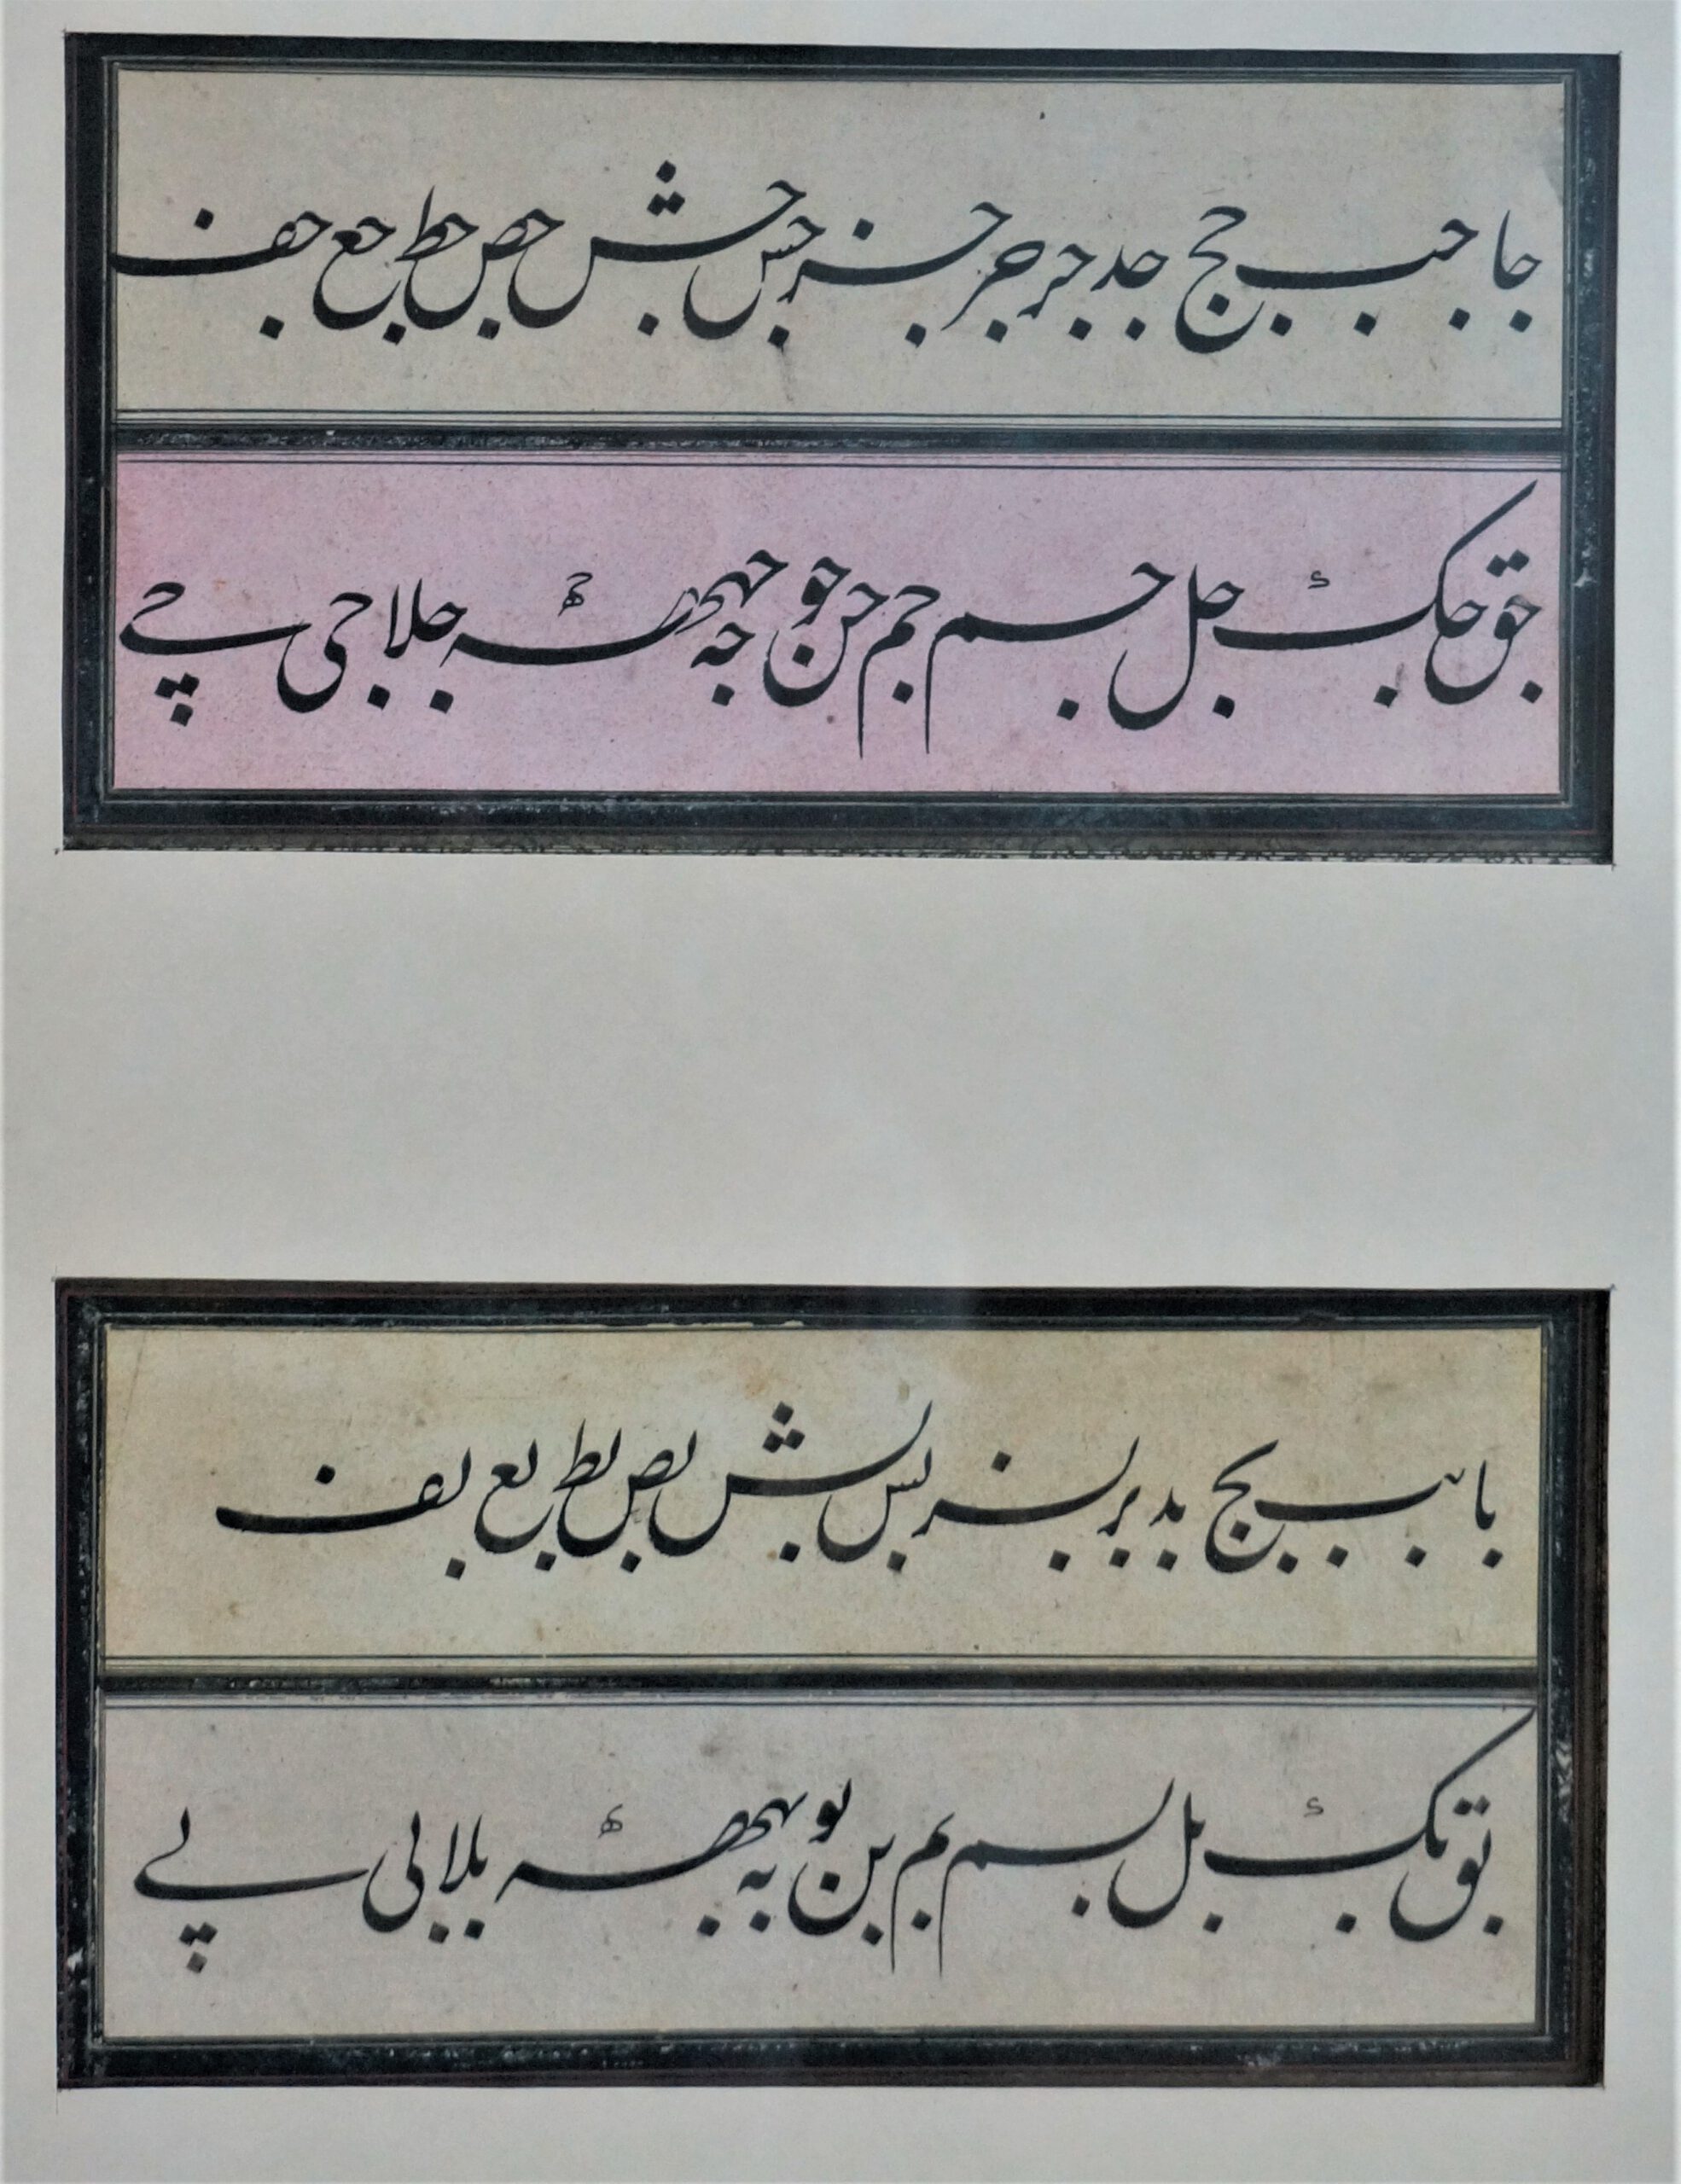 جا جب جج جد جر جر جز جس جش جص جط جع جف
جق جک جل جسم جم جن جو جه جهجهه جلا جی جے
با بب بج بد بر بز بس بش بص بط بع بف
بق بک بل بسم بم بن بو به بهه بلا بی بے